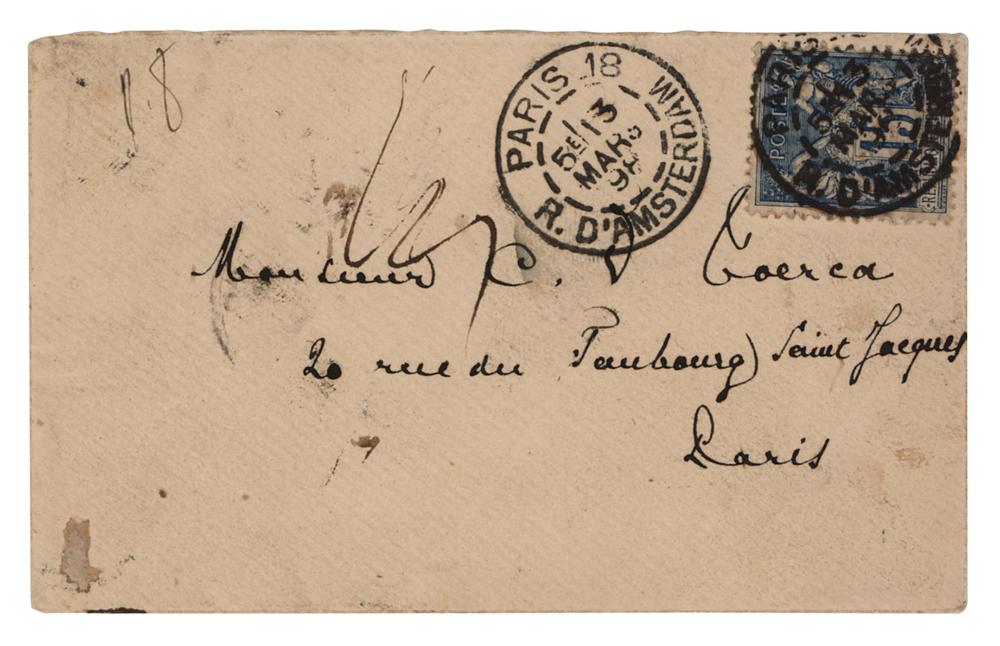 PARIS 18
5E/13
MARS
98
R. D'AMSTERDAM
POSTA
15
R. D'AMSTERDAM
Monsieur C.
20 rue du Faubourg Saint Jacques
Paris